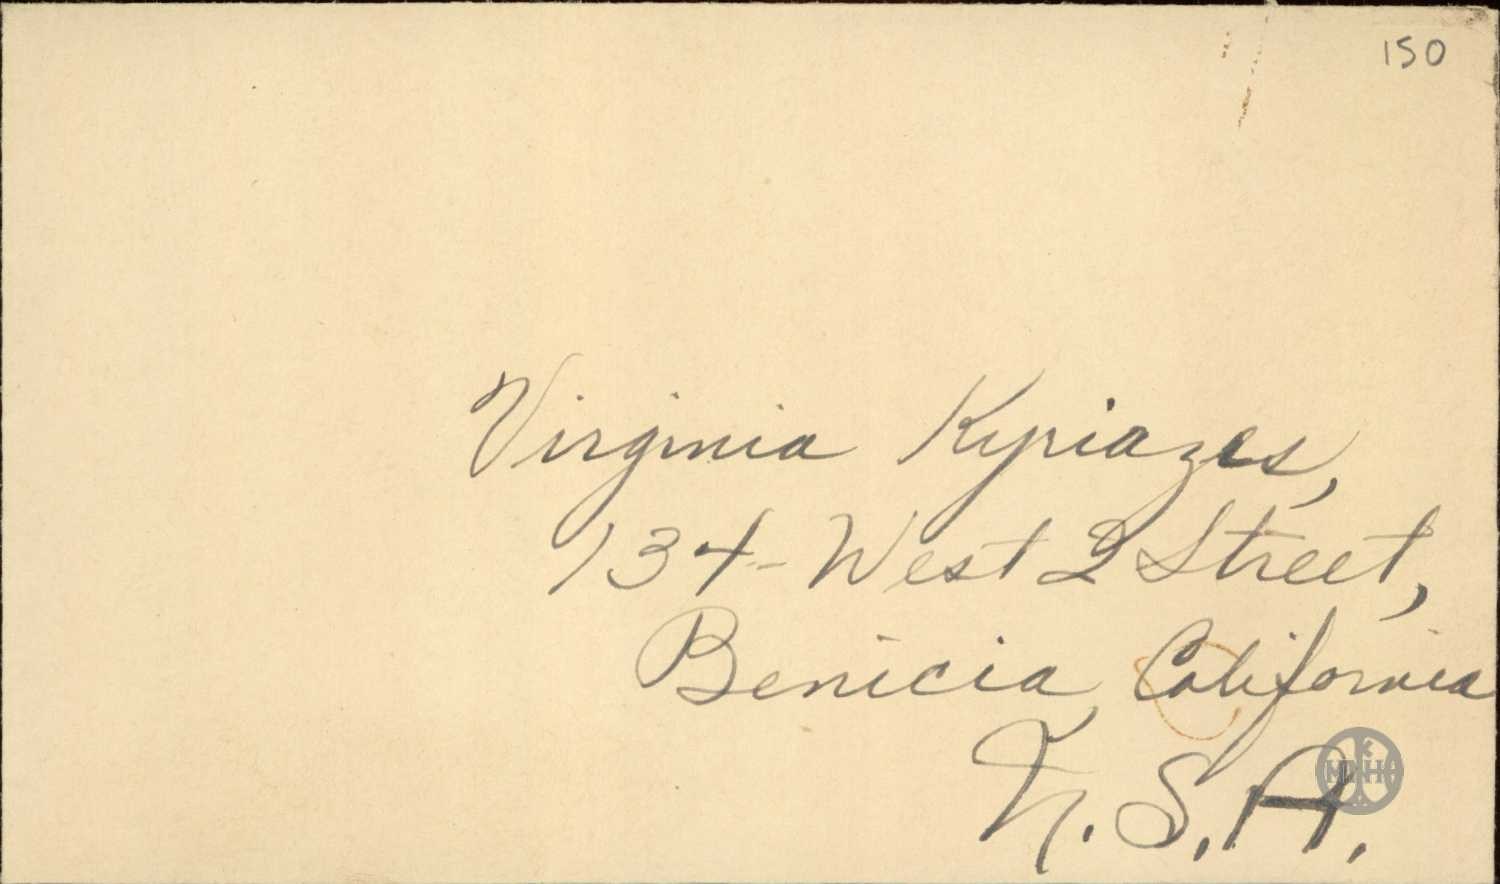 150
Virginia Kyriazes,
134-West I Street,
Benicia, California
U.S.A.